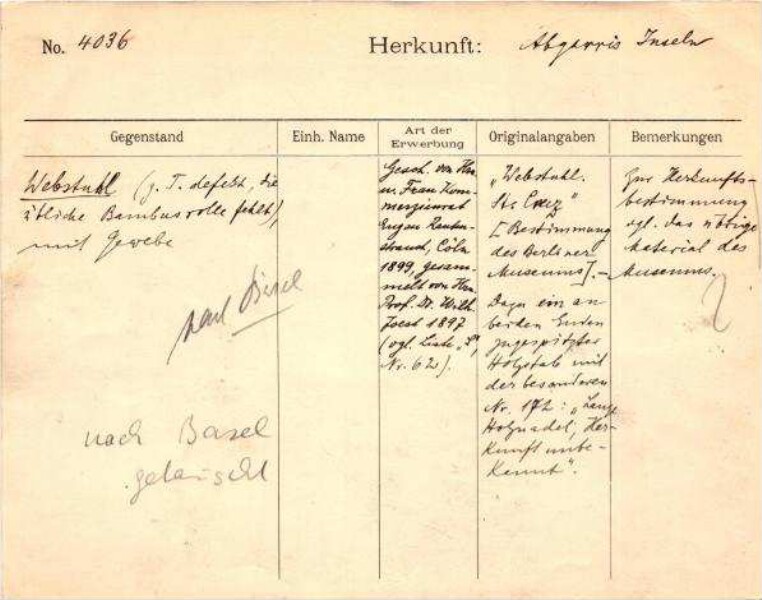 No. 4036 Herkunft: Abgarris Inseln
Gegenstand
Einh. Name
Art der
Erwerbung
Originalangaben
Bemerkungen
Webstuhl (z. T. defekt, die
übliche Bambusrolle fehlt),
mit Gewebe
nach Basel
nach Basel
getauscht
Gesch. von Hrn.
u. Frau Kom-
merzienrat
Eugen Rauten-
strauch, Cöln
1899, gesam-
melt von Hrn.
Prof. Dr. Wilh.
Joest 1897
(vgl. Liste „S",
Nr. 62).
„Webstuhl.
Sta Cruz"
[Bestimmung
des Berliner
Museums]. –
Dazu ein an
beiden Enden
zugespitzter
Holzstab mit
der besonderen
Nr. 172: „Lange
Holznadel; Her-
kunft unbe-
kannt".
Zur Herkunfts-
bestimmung
vgl. das übrige
Material des
Museums.